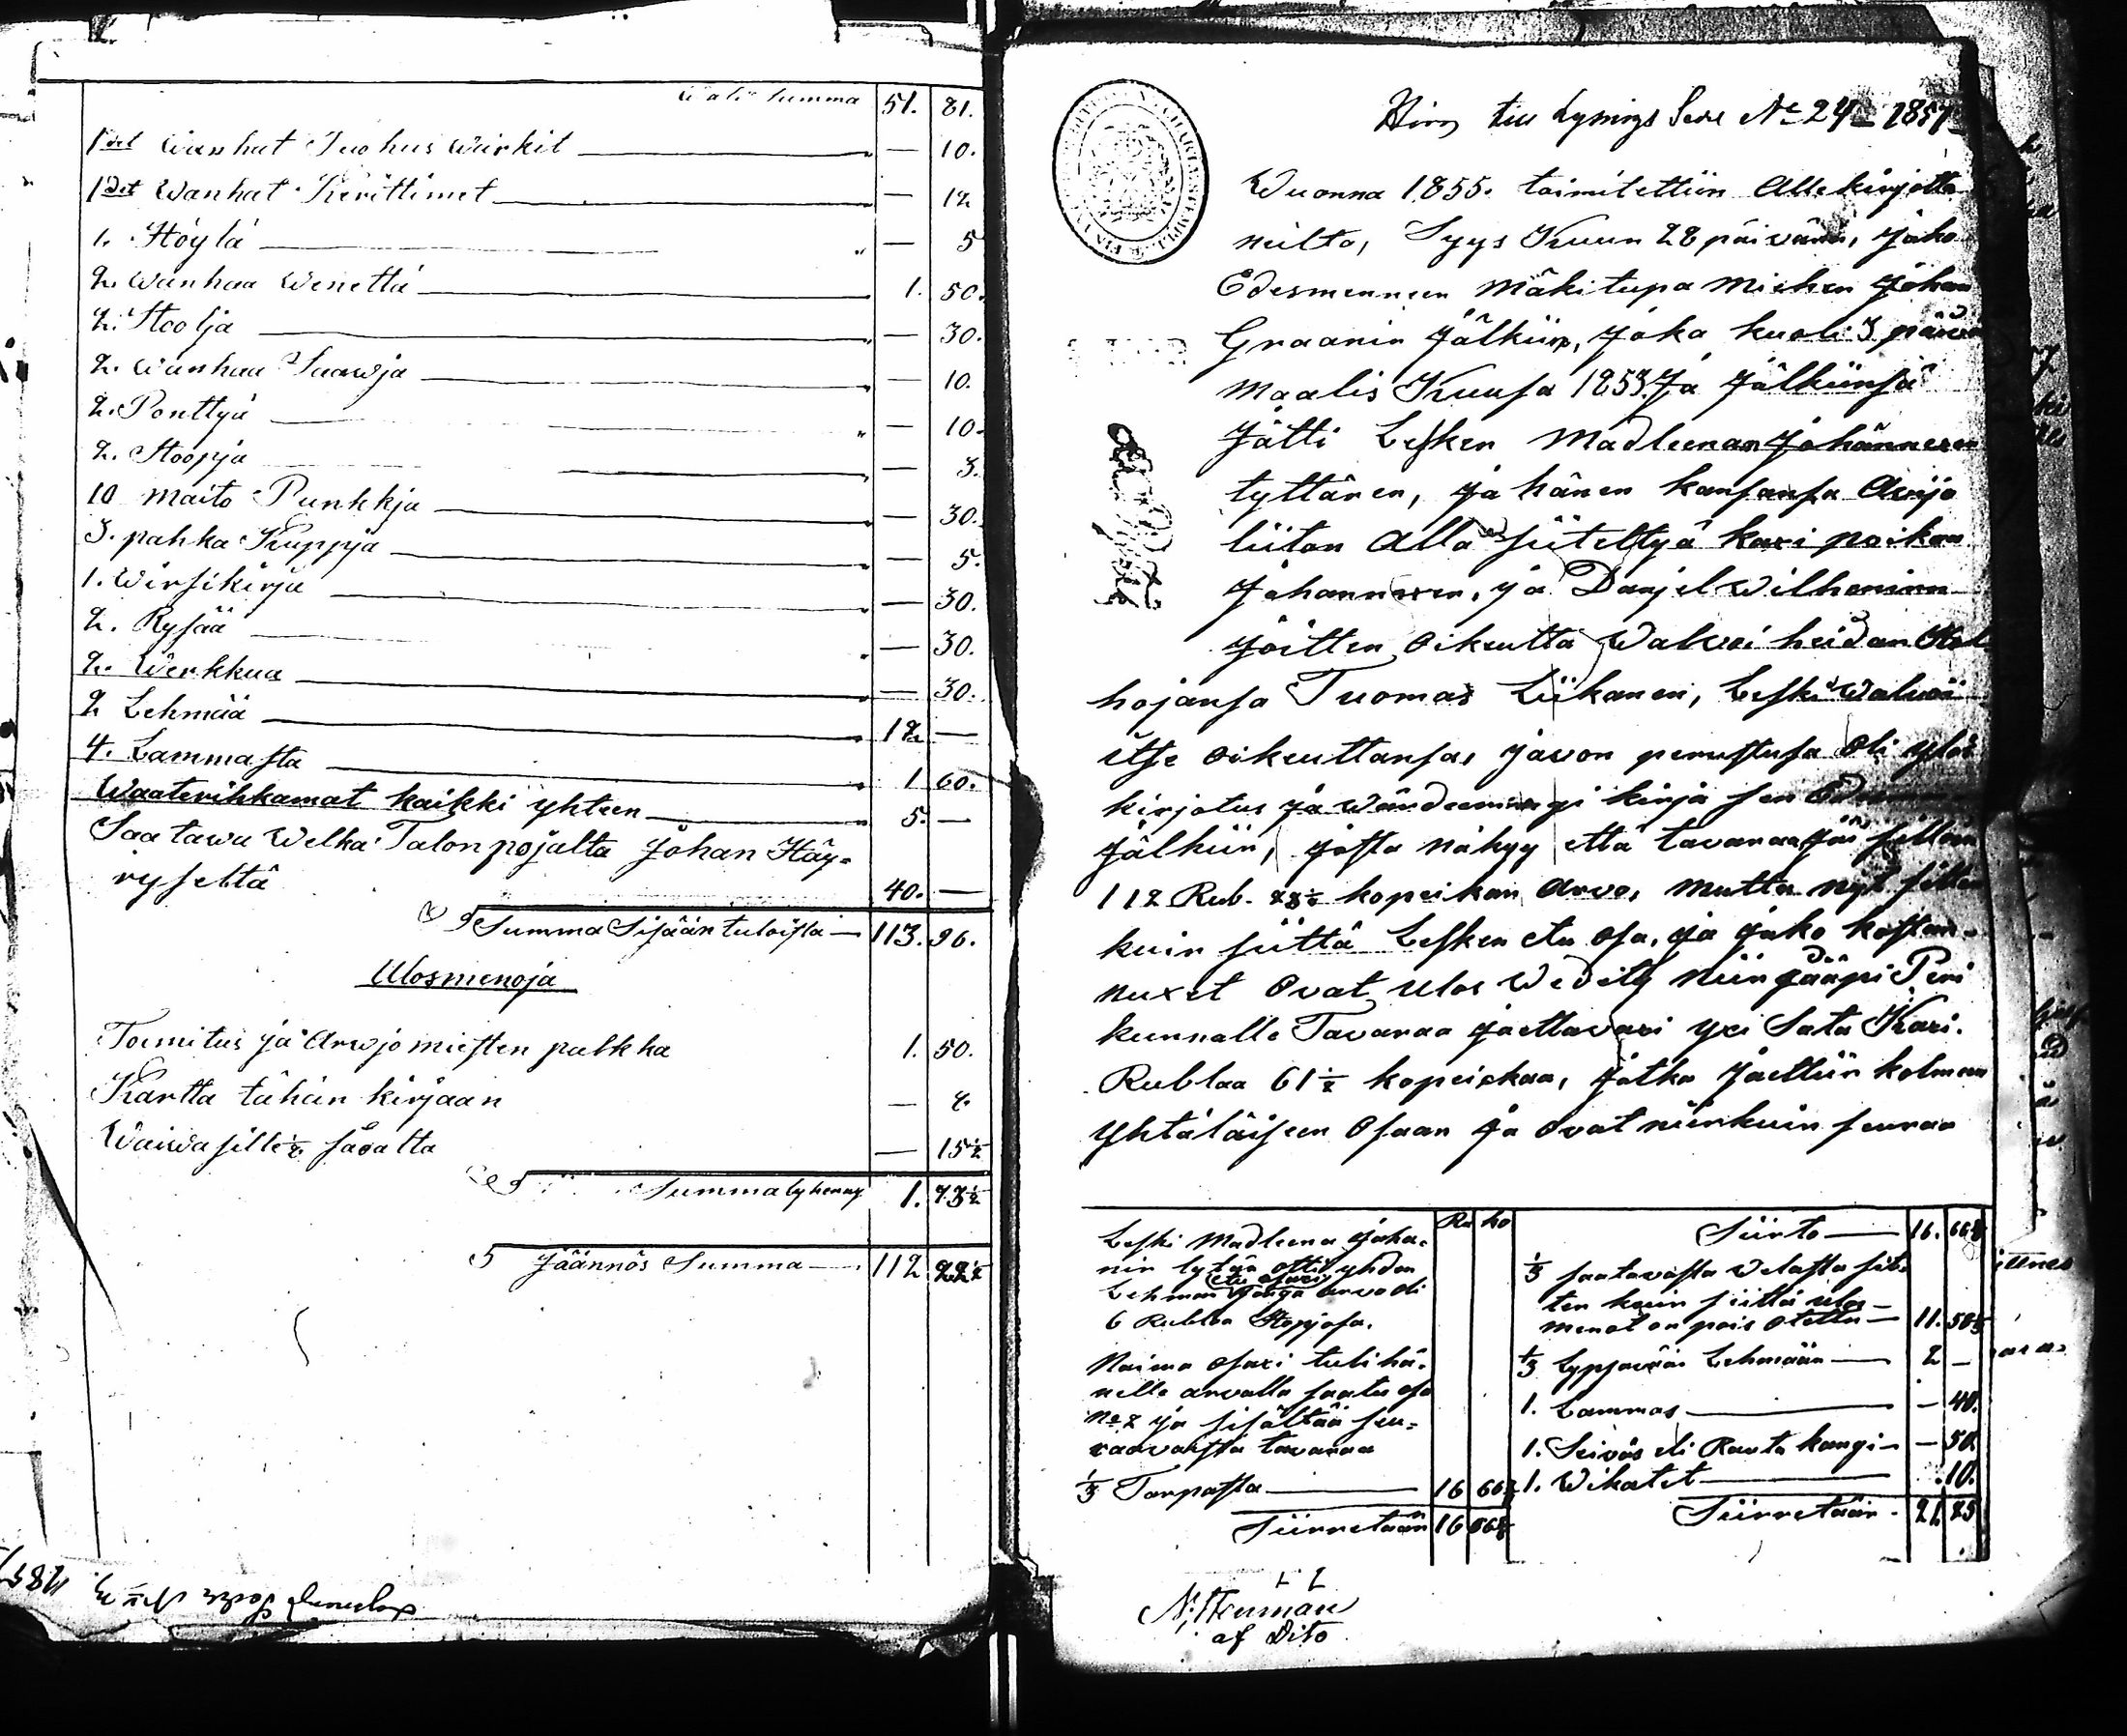 Wäli summa 51. 81.
1 det wanhat Tuohus wärkit — 10.
1 det Wanhat Kerittimet — 12
1. Höylä — 5
2. wanhaa Wenettä 1. 50.
2. Stoolja — 30.
2. wanhaa Saawja — 10.
2. Ponttyä — 10.
2. Stoopja — 3.
10 maito Punkkja — 30.
3. pahka Kuppja — 5.
1. Wirsikirja — 30.
2. Rysää — 30.
2. Werkkua — 30.
2 Lehmää 12 —
4. Lammasta 1 60.
Waaterihkamat kaikki yhteen 5. —
Saatawa Welka Talonpojalta Johan Häy-
ryseltä 40. —
Summa Sisään tuloista — 113. 96.
Ulosmenoja
Toimitus ja Arwjo miesten palkka 1. 50.
Kartta tähän kirjaan — 8.
Waiwasille ½ såsatta — 15½
Summa lyhenny 1. 73½
Jäännös Summa — 112 22½
1857
till Lysnings Sedl No 24 1857
Wuonna 1855. toimitettiin Allekirjotta
neilta, Syys Kuun 28 päivänä, Jako
Edesmenneen Mäkitupa Miehen Johan
Graanin Jälkiin, Joka kuoli 3 päivä
Maalis Kuusa 1853. Ja Jälkiinsä
Jätti Lesken Madleenan Johannexen
tyttären, ja hänen kansansa Avijo
liiton Alla siitettyä kaxi poikan
Johannexen, ja Danjel Wilhemin
Joitten oikeutta Walvoi heidan Hol
hojansa Tuomas Liikanen, Leski Walvoi
itse oikeuttansa, javon perustusa Oli ylös
kirjotus ja Wärdeeringi kirja sen
Jälkiin, josta näkyy että tavaraa jäi silloin
112 Rub. 22½ kopeikan Arvo, mutta nyt sitten
kuin siittä Lesken etu osa, ja jako kostan-
nuxet Ovat ulos Wedetty niin jääpi Peri
kunnalle Tavaraa jaettavaxi yxi Sata Kaxi.
Rublaa 61½ kopeickaa, jotka Jaettiin kolmeen
Yhtäläiseen Osaan ja Ovat niinkuin seuraa
Ru ko
Leski Madleena Joha-
nin tytär otti yhden
etu osaxi
Lehmän Jonga arvo oli
6 Rublaa Hopjasa.
Naima Osaxi tuli hä-
nelle arvalla saatu osa
No 2 ja sisältää seu-
raavaista tavaraa
⅓ Torpasta 16 66⅔
Siirretään 16 66⅔
Siirto 16. 66⅔
⅓ saatavasta Welasta sit-
ten kuin siittä ulos-
menot on pois otettu 11. 58⅓
⅓ Lypsävään Lehmään 2 —
1. Lammas — 40.
1. Seiväs eli Rauta kangi — 50
1. Wikatet . 10.
Siirretään 31 25
N: Neuman
af Dito